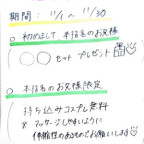 期間：11/1 〜 11/30
○ 初めまして 本指名のお客様
○○セット プレゼント
○ 本指名のお客様限定
持ち込みコスプレ無料
※マッサージしやすいように
伸縮性のあるものでお願いします